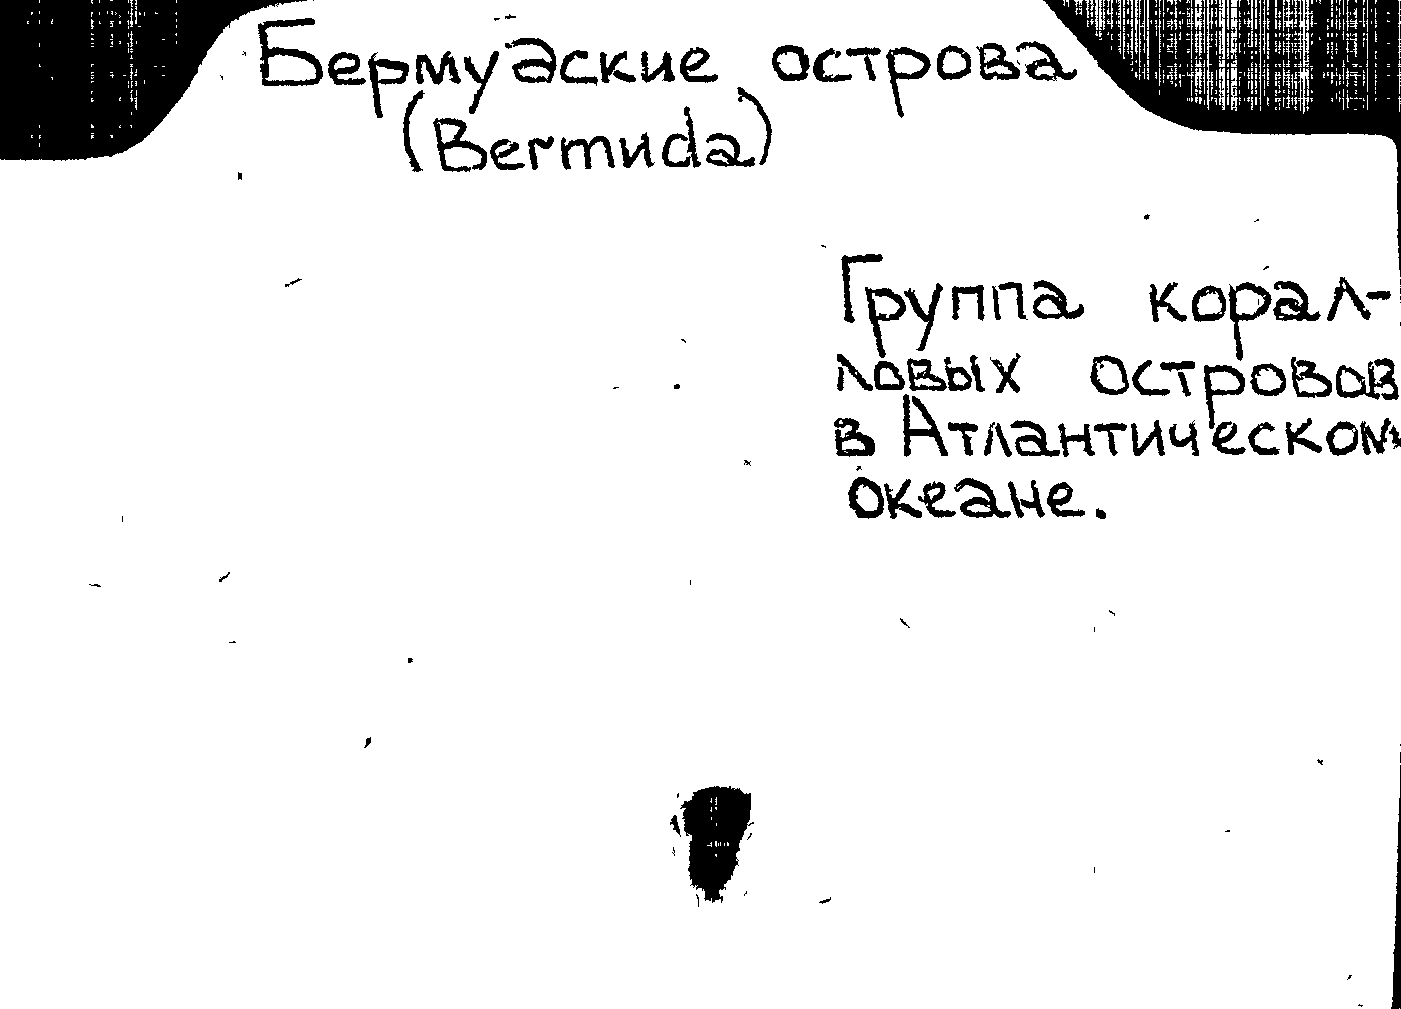 Бермудские острова
(Bermuda)
Группа корал-
ловых островов
в Атлантическом
океане.